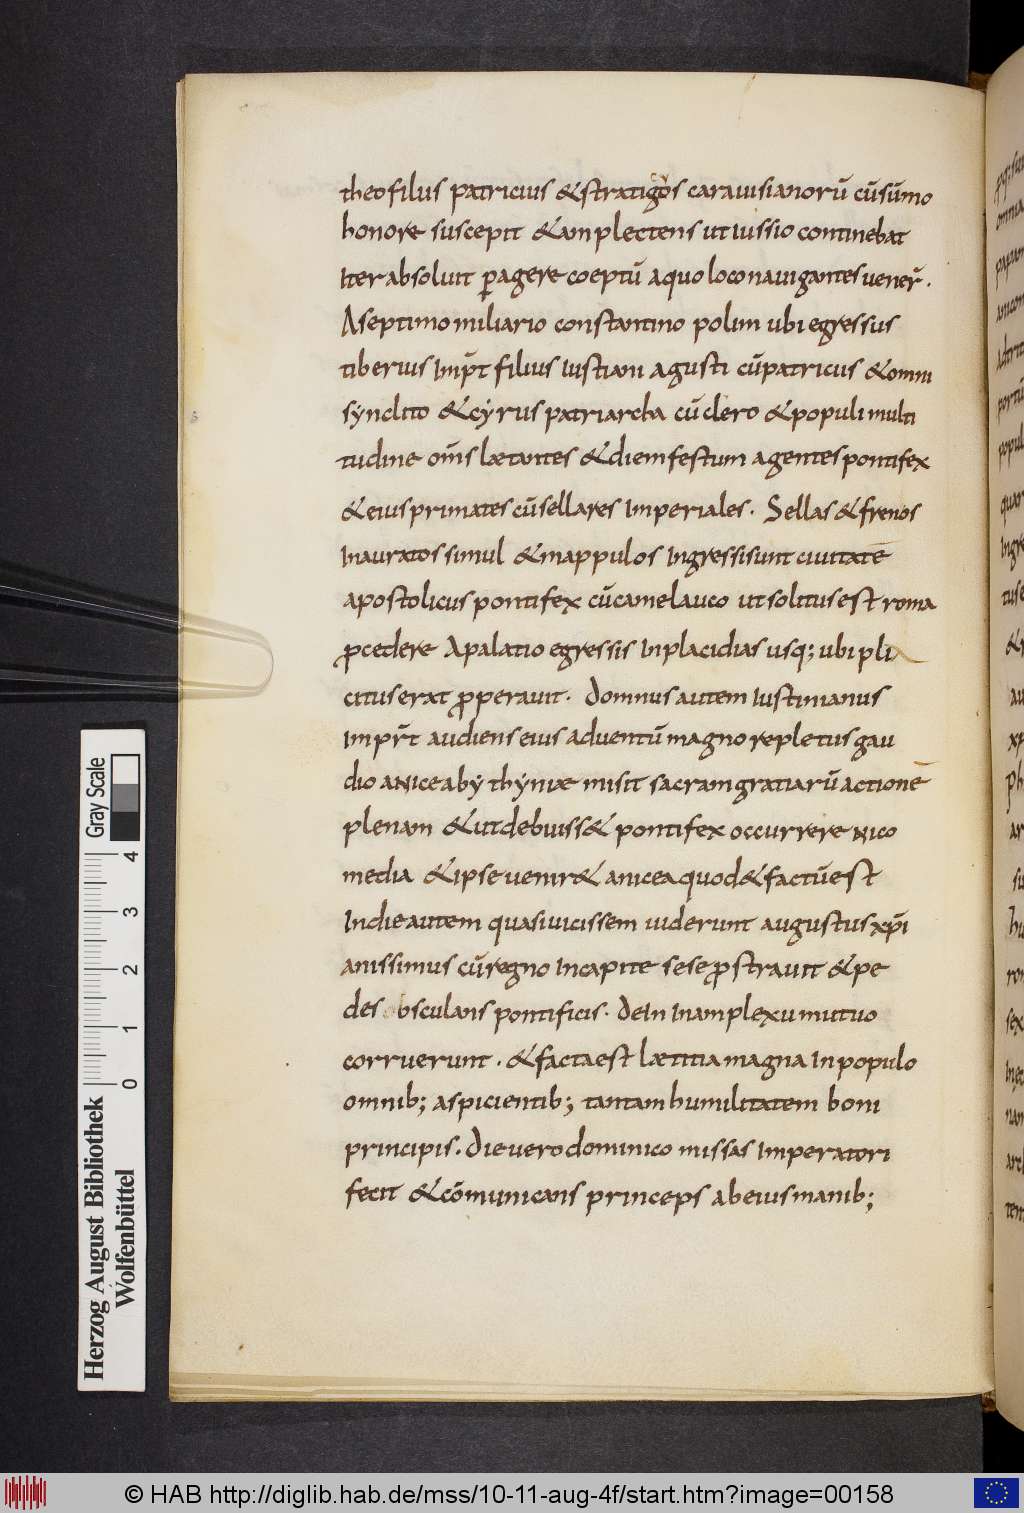 theofilus patricius &stratigos carauisianorū cūsūmo
honore suscepit &amplectens utiussio continebat
Iter absoluit ꝑagere coeptū aquo loco nauigantes uener̄.
A septimo miliario constantino polim ubi egressus
tiberius imp̄r̄t filius iustiani agusti cūpatricus &omni
synclito &cyrus patriarcha cū clero &populi multi
tudine om̄s lætantes &diemfestum agentes pontifex
&eius primates cūsellares Imperiales. Sellas &frenos
Inauratos simul &mappulos Ingressisunt ciuitatē
apostolicus pontifex cūcamelauco utsolitusest roma
ꝓcedere Apalatio egressis Inplacidias usq; ubipli
citus erat ꝓperauit. Domnus autem Iustinianus
Impr̄t audiens eius aduentū magno repletus gau
dio aNicea bythyniæ misit sacram gratiarū actionē
plenam &utdebuiss& pontifex occurrere Nico
media &ipse uenir& anicea quod&factūest
Indieautem quasiuicissem uiderunt augustus xp̄i
anissimus cūregno Incapite sese ꝓstrauit &pe
des obsculans pontificis. DeIn Inamplexu mutuo
corruerunt. &factaest lætitia magna In populo
omnib; aspicientib; tantam humilitatem boni
principis. Die uero dominico missas Imperatori
fecit &cōmunicans princeps ab eius manib;
Gray Scale
4
3
2
1
0
Herzog August Bibliothek
Wolfenbüttel
© HAB http://diglib.hab.de/mss/10-11-aug-4f/start.htm?image=00158